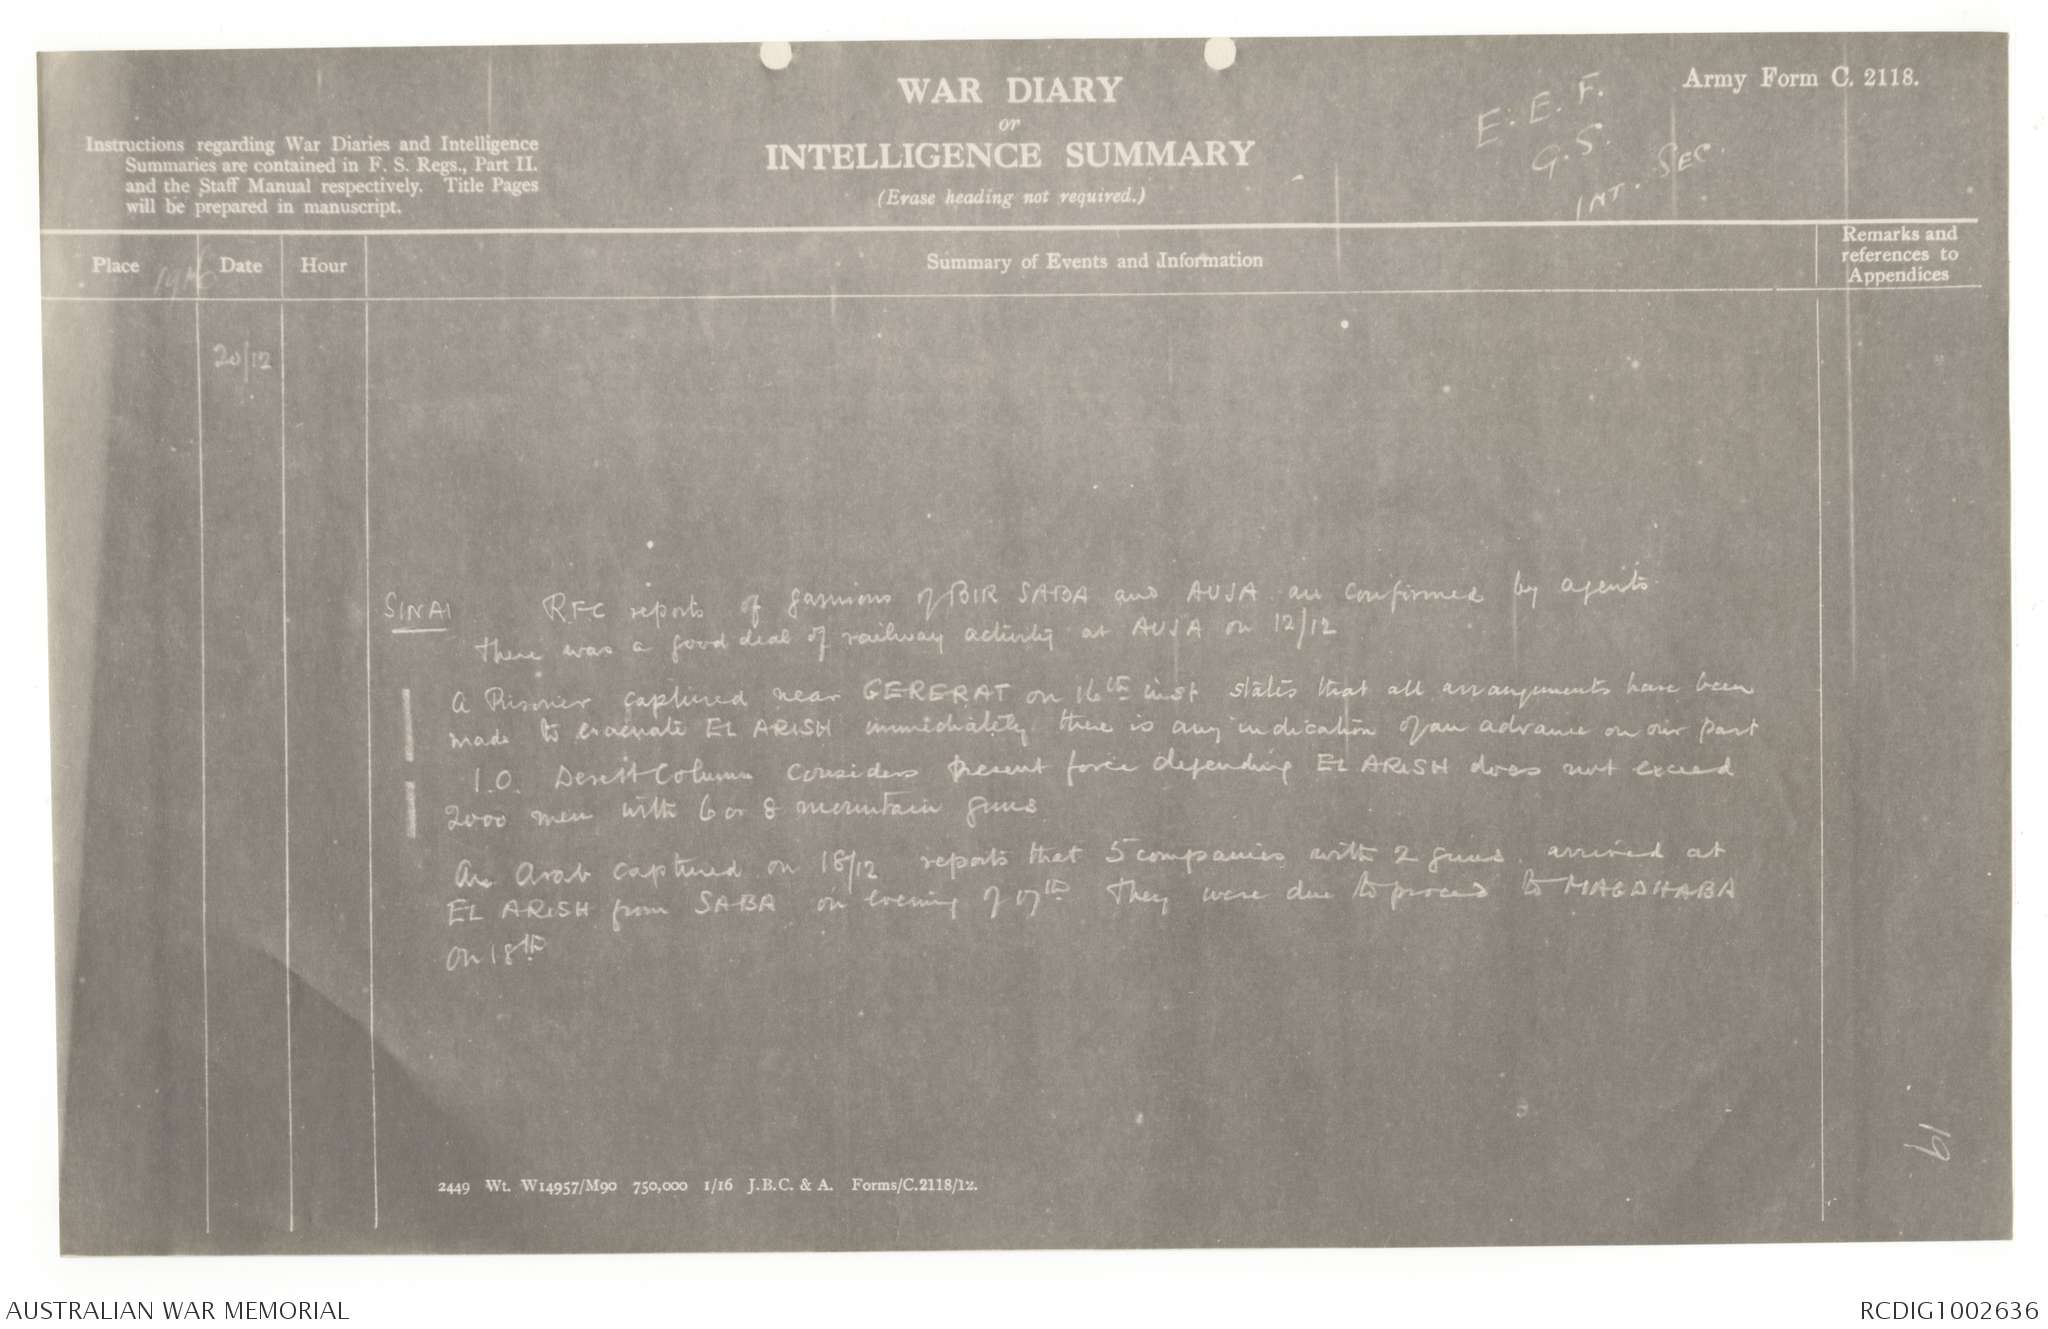 WAR DIARY
or
INTELLIGENCE SUMMARY
(Erase heading not required.)
Army Form C. 2118.
E. E. F.
G. S.
INT. SEC.
Instructions regarding War Diaries and Intelligence
Summaries are contained in F. S. Regs., Part II.
and the Staff Manual respectively. Title Pages
will be prepared in manuscript.
Place
1916
Date
Hour
Summary of Events and Information
Remarks and
references to
Appendices
20/12
SINAI RFC reports of garrisons of BIR SABA and AUJA are confirmed by agents.
There was a good deal of railway activity at AUJA on 12/12
A Prisoner captured near GERERAT on 16th inst states that all arrangements have been
made to evacuate EL ARISH immediately there is any indication of an advance on our part
I.O. Desert Column considers present force defending EL ARISH does not exceed
2000 men with 6 or 8 mountain guns
An Arab captured on 18/12 reports that 5 companies with 2 guns arrived at
EL ARISH from SABA on evening of 17th They were due to proceed to MAGDHABA
on 18th
19
2449 Wt. W14957/M90 750,000 1/16 J.B.C. & A. Forms/C.2118/12.
AUSTRALIAN WAR MEMORIAL
RCDIG1002636